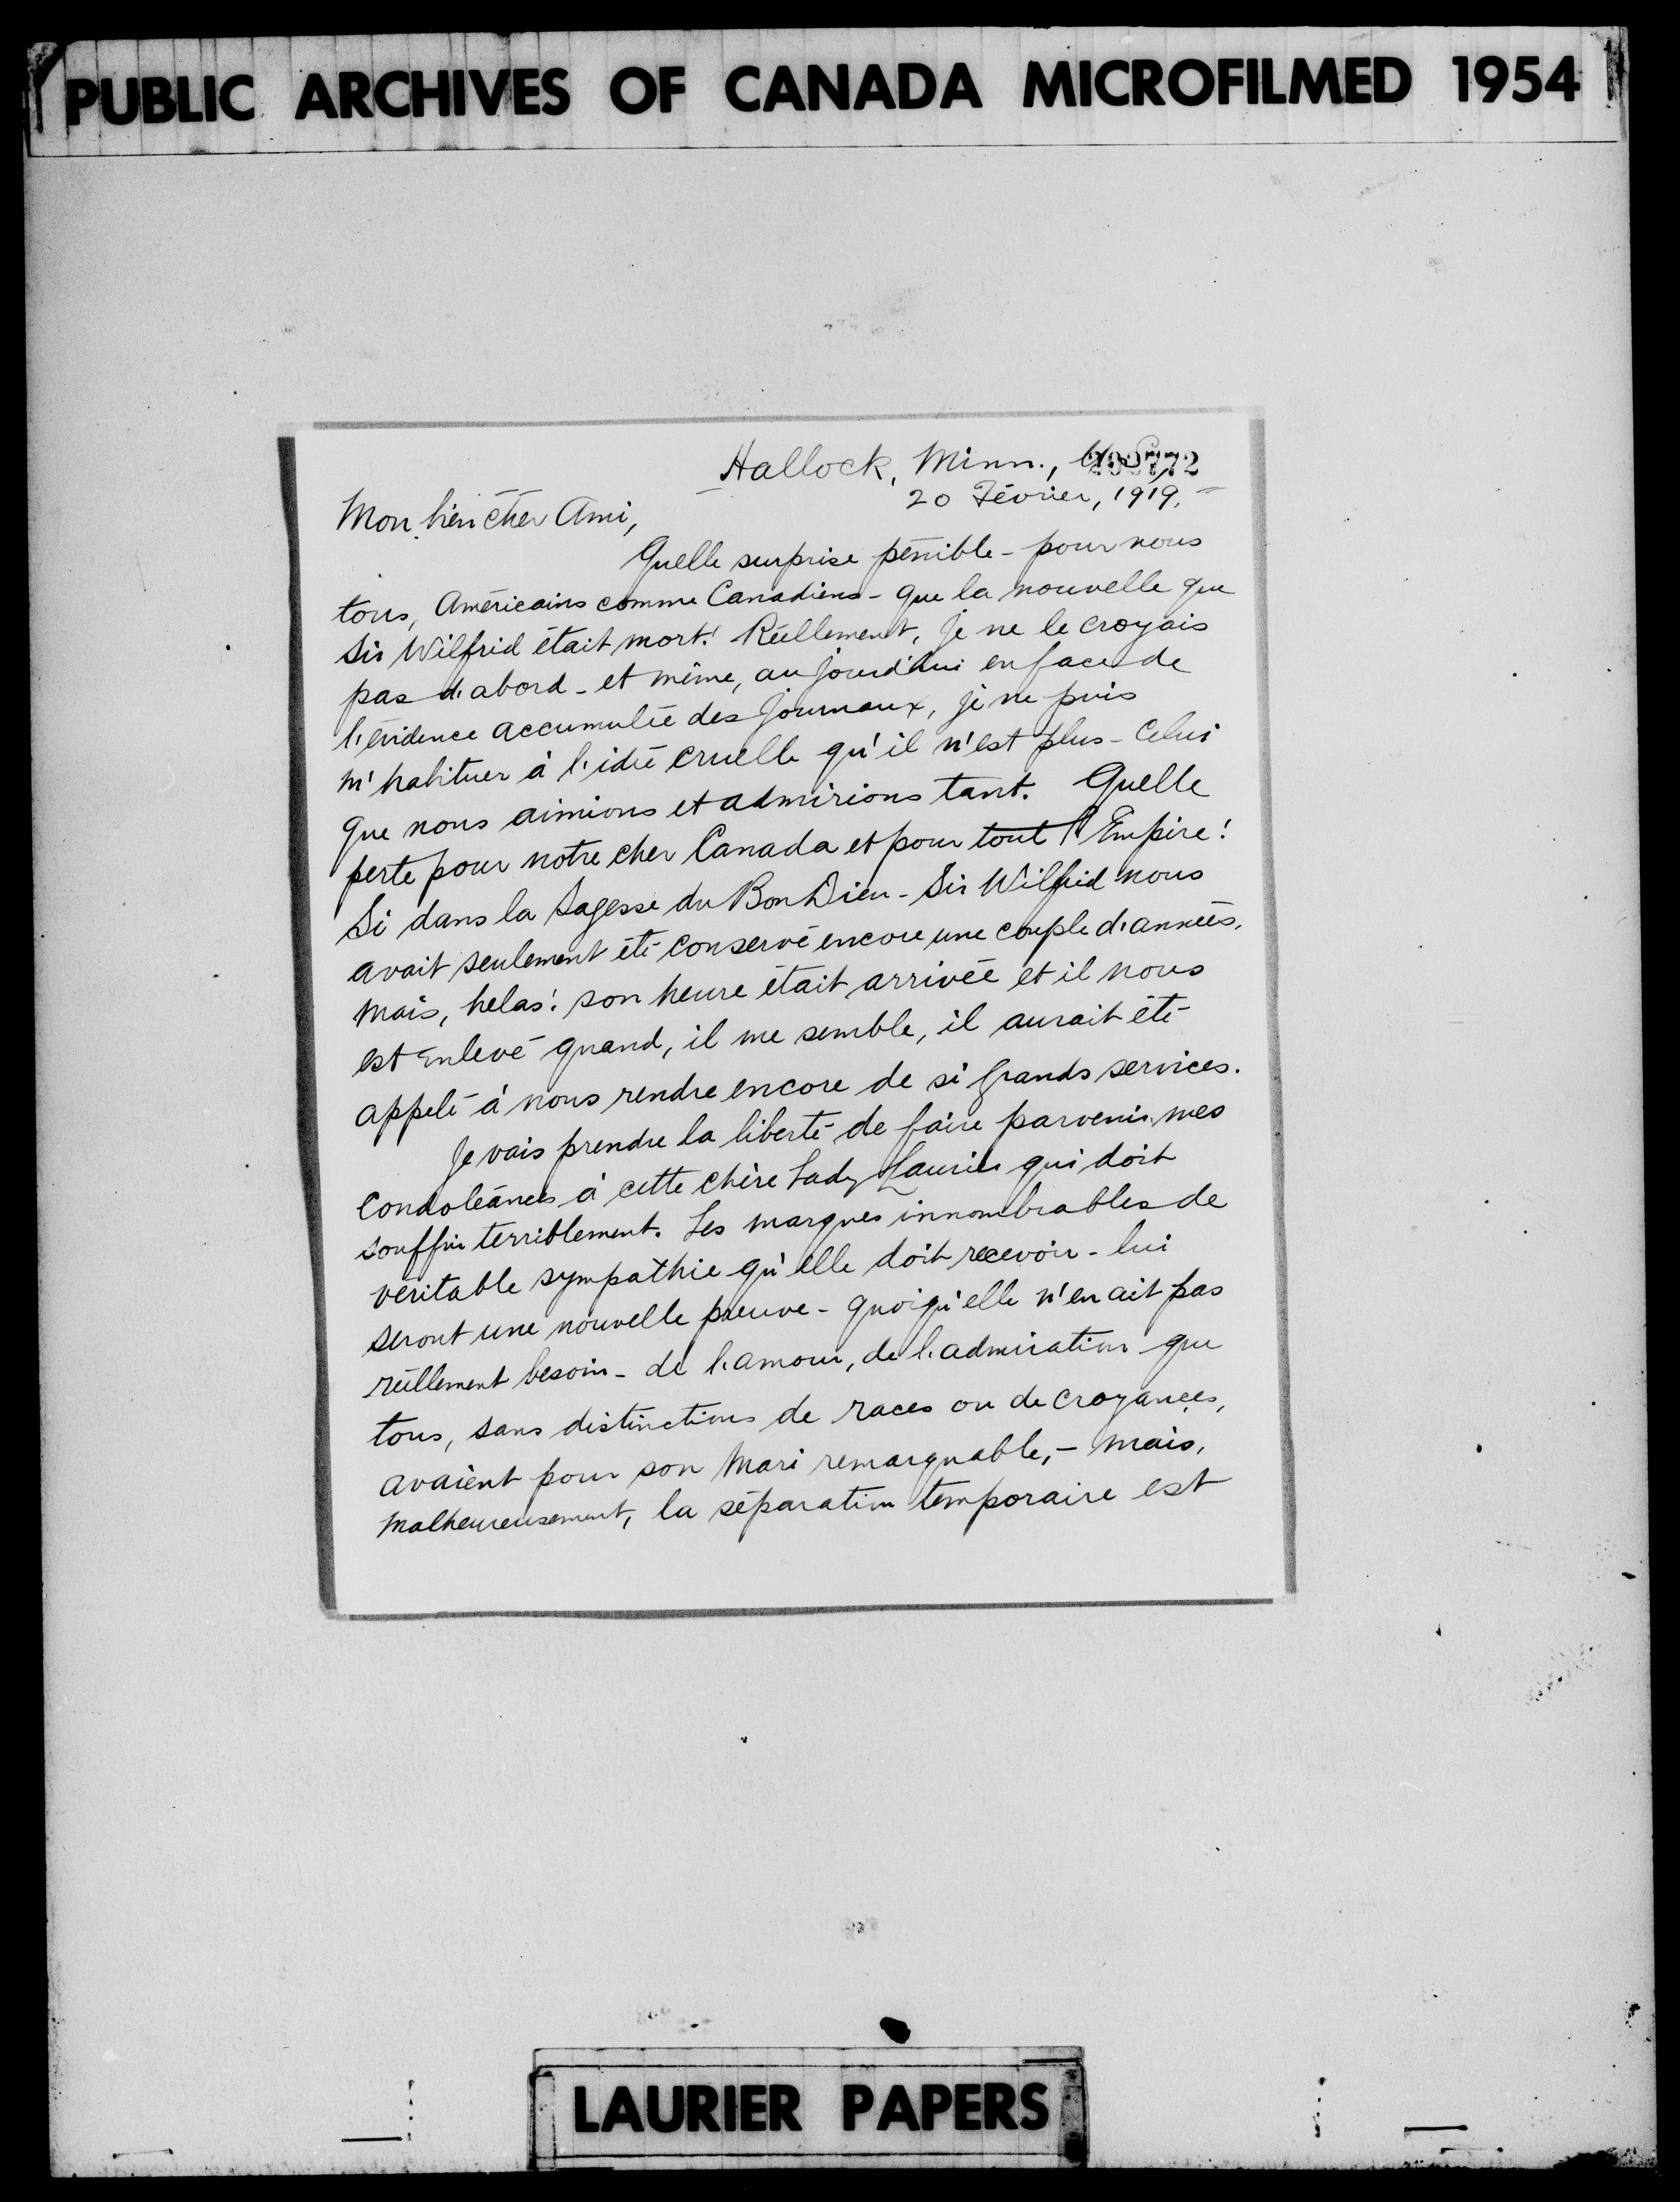 PUBLIC ARCHIVES OF CANADA MICROFILMED 1954
Hallock, Minn.,
20 Février, 1919.
Mon bien cher Ami,
Quelle surprise pénible - pour nous
tous, Américains comme Canadiens - que la nouvelle que
Sir Wilfrid était mort! Réellement, je ne le croyais
pas d'abord - et même, aujourd'hui en face de
l'évidence accumulée des journaux, je ne puis
m'habituer à l'idée cruelle qu'il n'est plus - Celui
que nous aimions et admirions tant. Quelle
perte pour notre cher Canada et pour tout l'Empire!
Si dans la Sagesse du Bon Dieu - Sir Wilfrid nous
avait seulement été conservé encore une couple d'années,
mais, helas! son heure était arrivée et il nous
est enlevé quand, il me semble, il aurait été
appelé à nous rendre encore de si grands services.
Je vais prendre la liberté de faire parvenir mes
Condoléances à cette chère Lady Laurier qui doit
souffrir terriblement. Les marques innombrables de
véritable sympathie qu'elle doit recevoir - lui
seront une nouvelle preuve - quoiqu'elle n'en ait pas
réellement besoin - de l'amour, de l'admiration que
tous, sans distinctions de races ou de croyances,
avaient pour son Mari remarquable, - mais,
malheureusement, la séparation temporaire est
LAURIER PAPERS